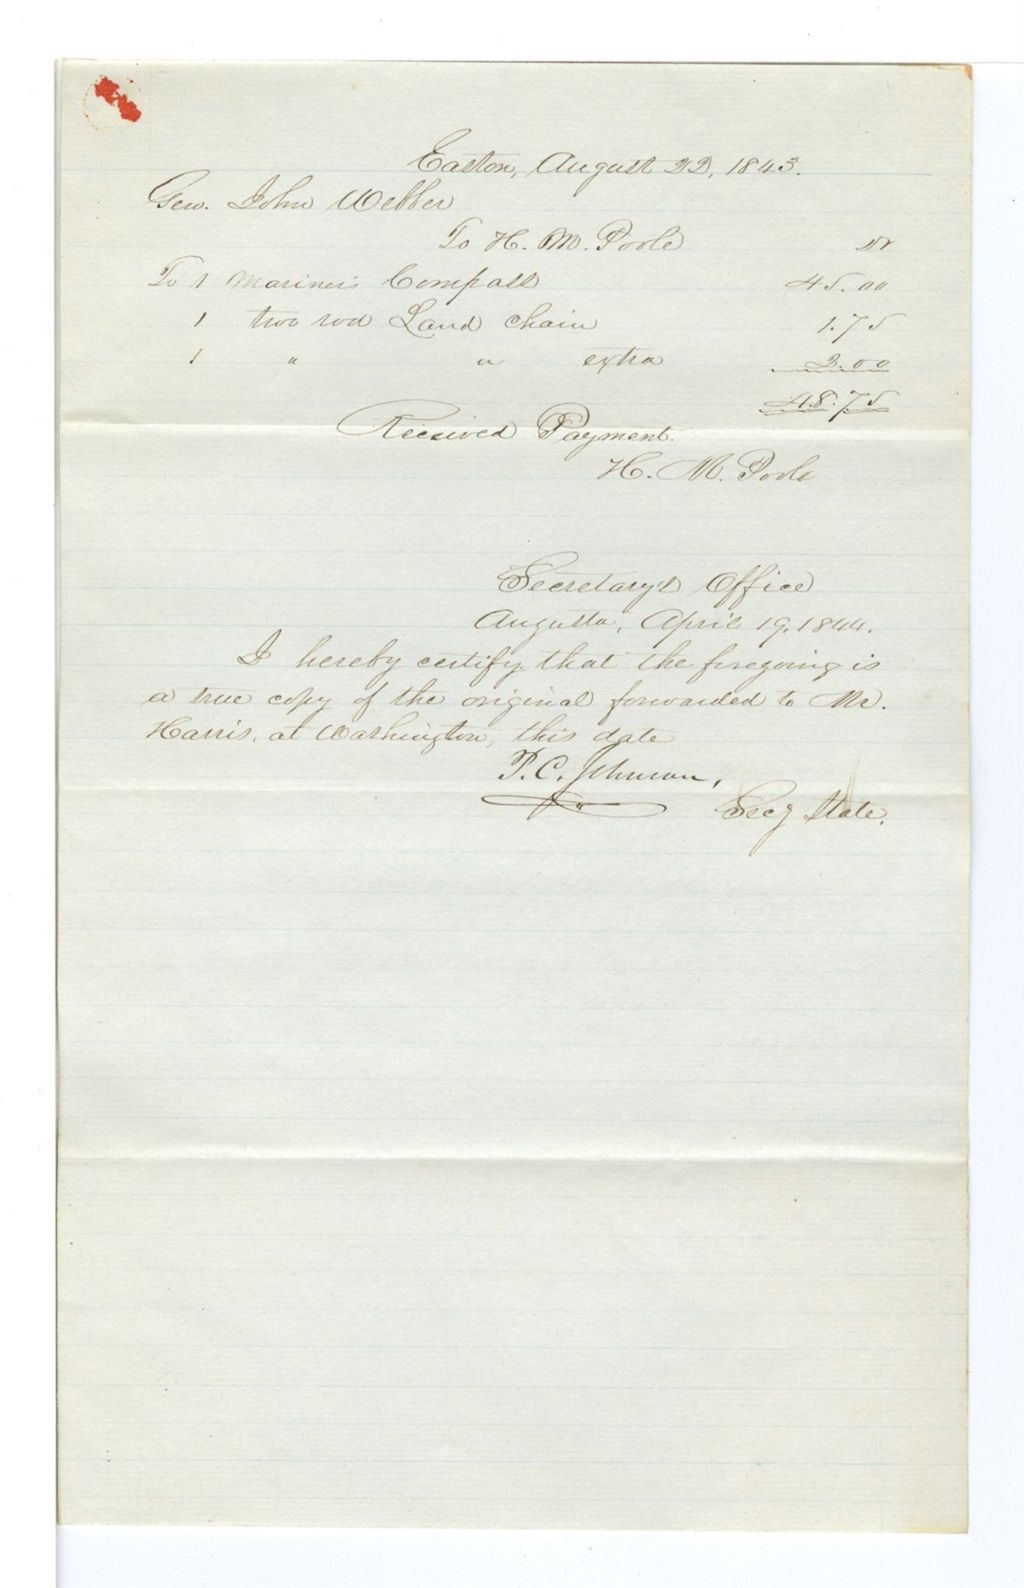 Easton, August 22, 1843.
Gen. John Webber
To H. M. Poole Dr
To 1 Mariner's Compass 45.00
1 two rod Land Chain 1.75
1 " " extra 2.00
48.75
Received Payment.
H. M. Poole
Secretary's Office
Augusta, April 19, 1844.
I hereby certify that the foregoing is
a true copy of the original forwarded to Mr.
Harris, at Washington, this date
P. C. Johnson,
Secy State.